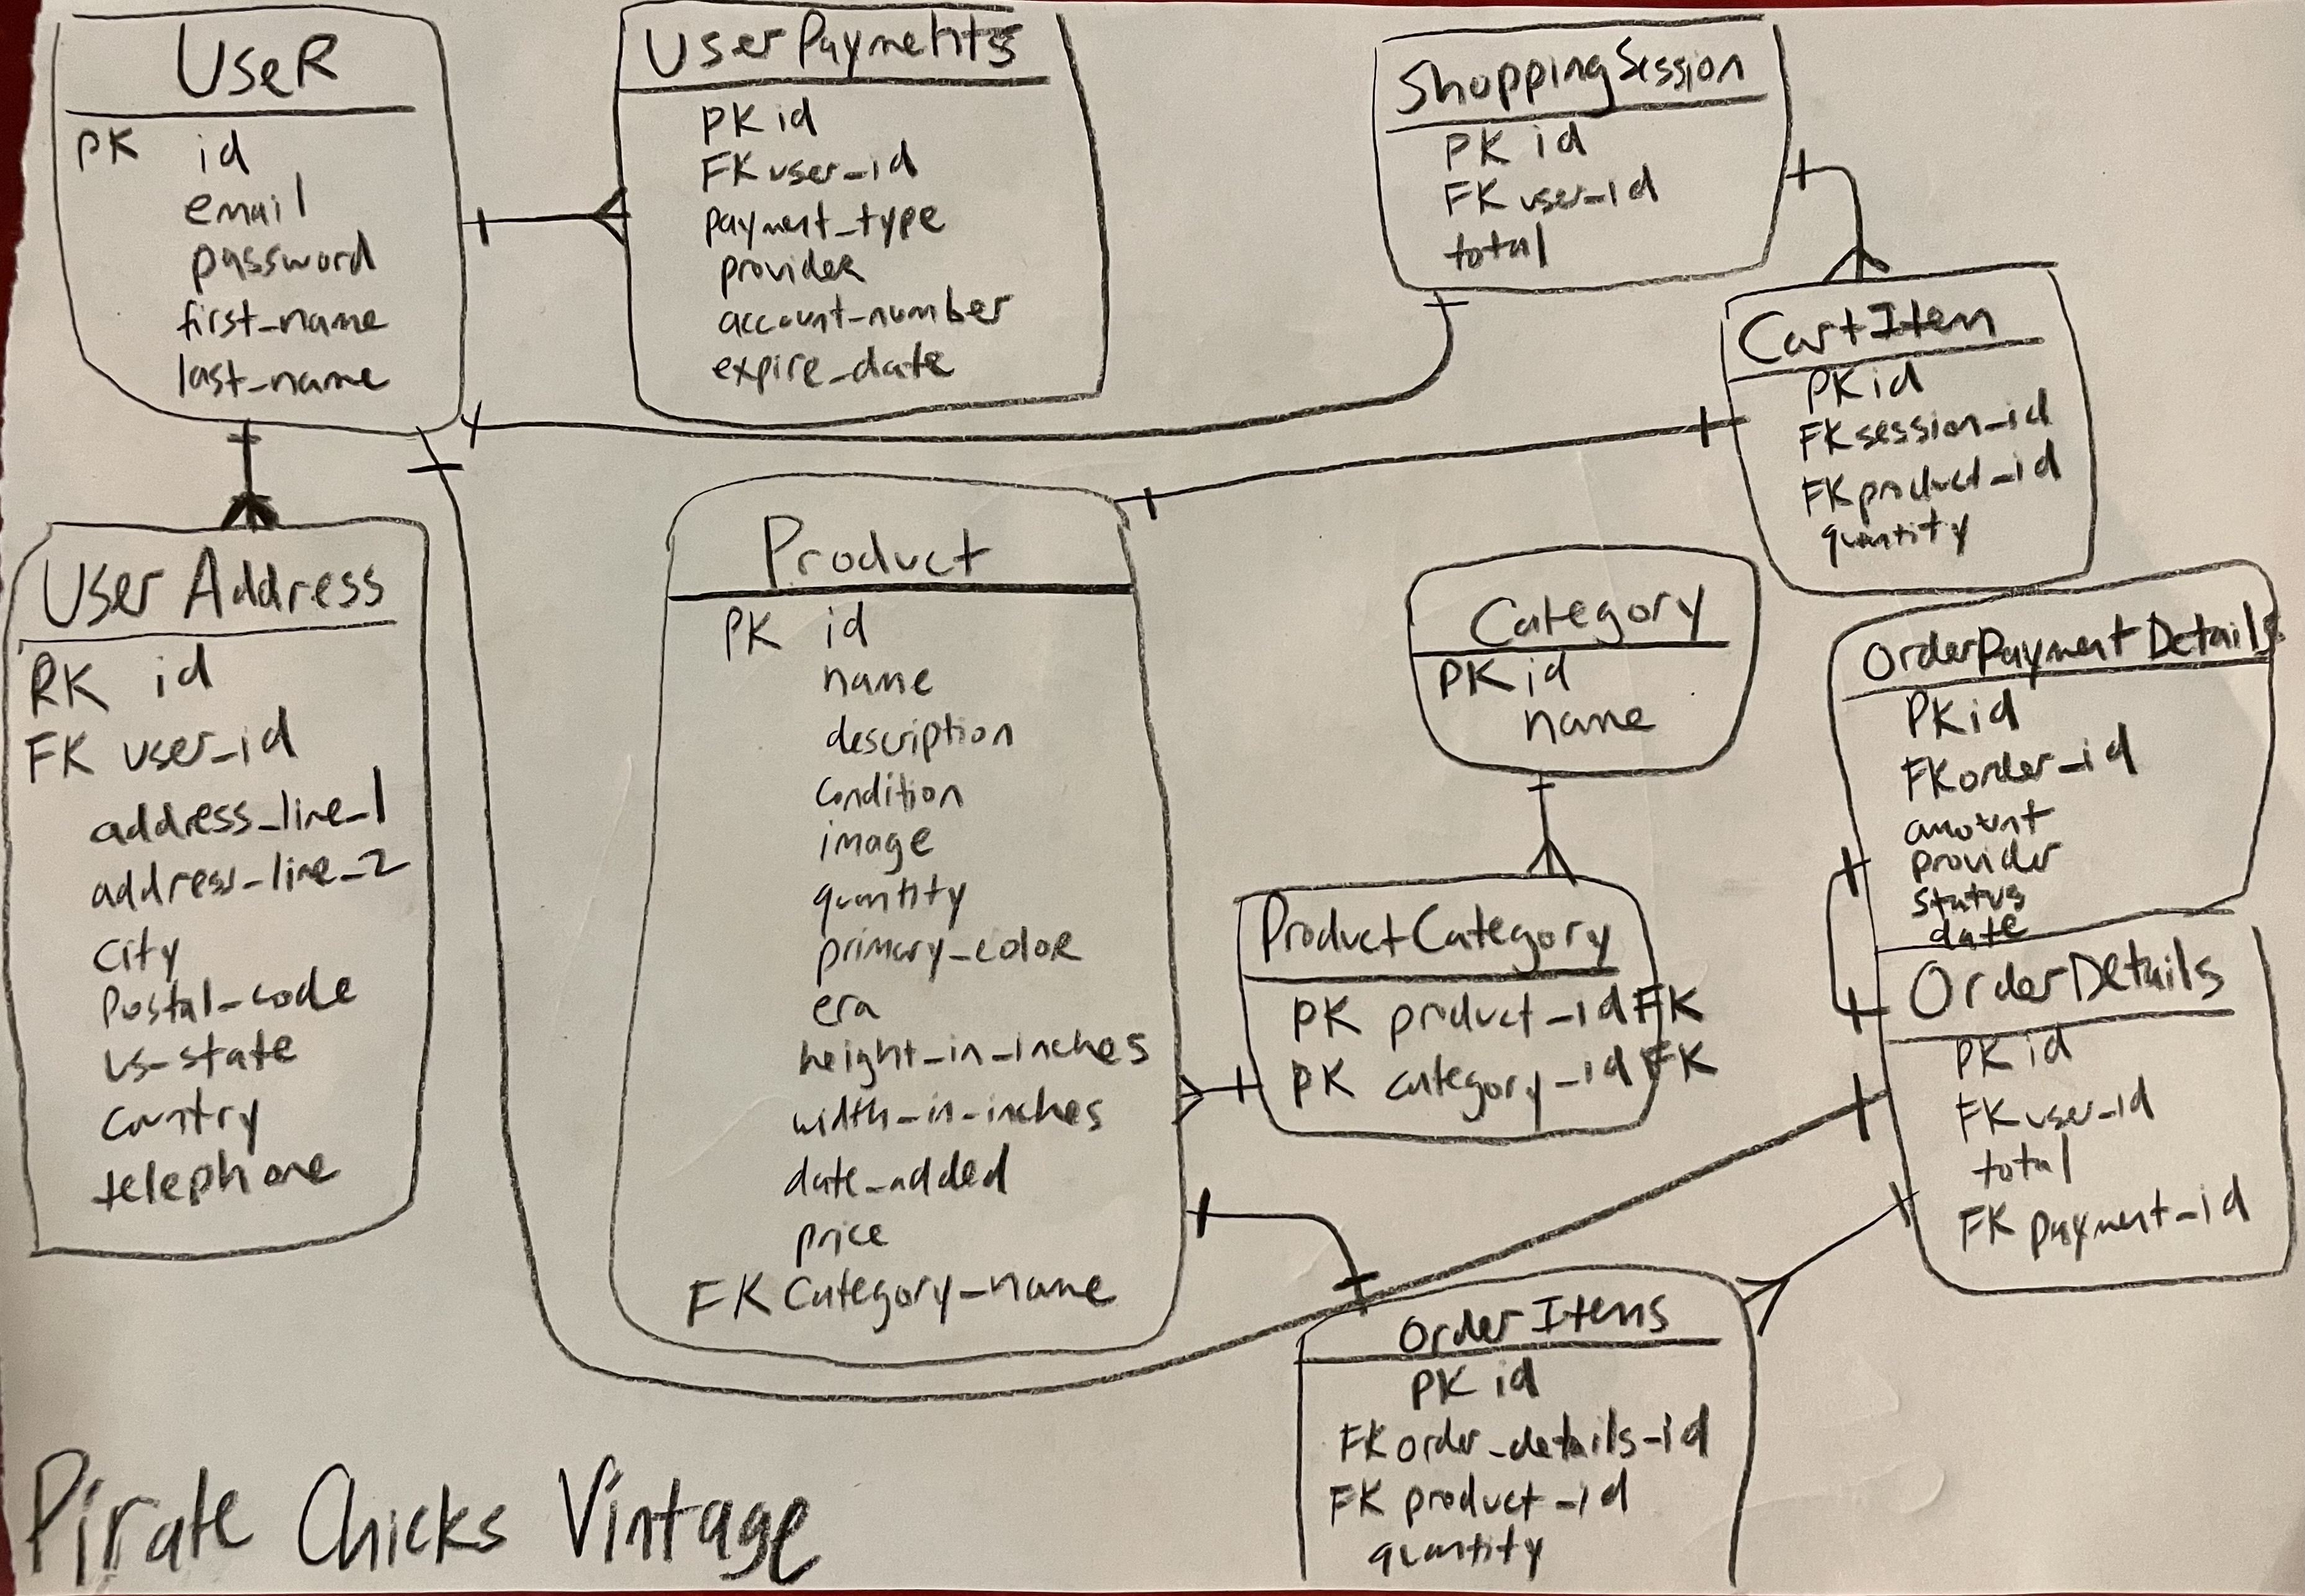 UseR
PK id
email
password
first_name
last_name
User Payments
PK id
FK user_id
payment_type
provider
account_number
expire_date
ShoppingSession
PK id
FK user_id
total
CartItem
PK id
FK session_id
FK product_id
quantity
User Address
PK id
FK user_id
address_line_1
address_line_2
City
Postal_code
us_state
Country
telephone
Product
PK id
name
description
condition
image
quantity
primary_color
era
height_in_inches
width_in_inches
date_added
price
FK Category_name
Category
PK id
name
ProductCategory
PK product_id FK
PK category_id FK
OrderPaymentDetails
PK id
FK order_id
amount
provider
status
date
OrderDetails
PK id
FK user_id
total
FK payment_id
Order Items
PK id
FK order_details_id
FK product_id
quantity
Pirate Chicks Vintage